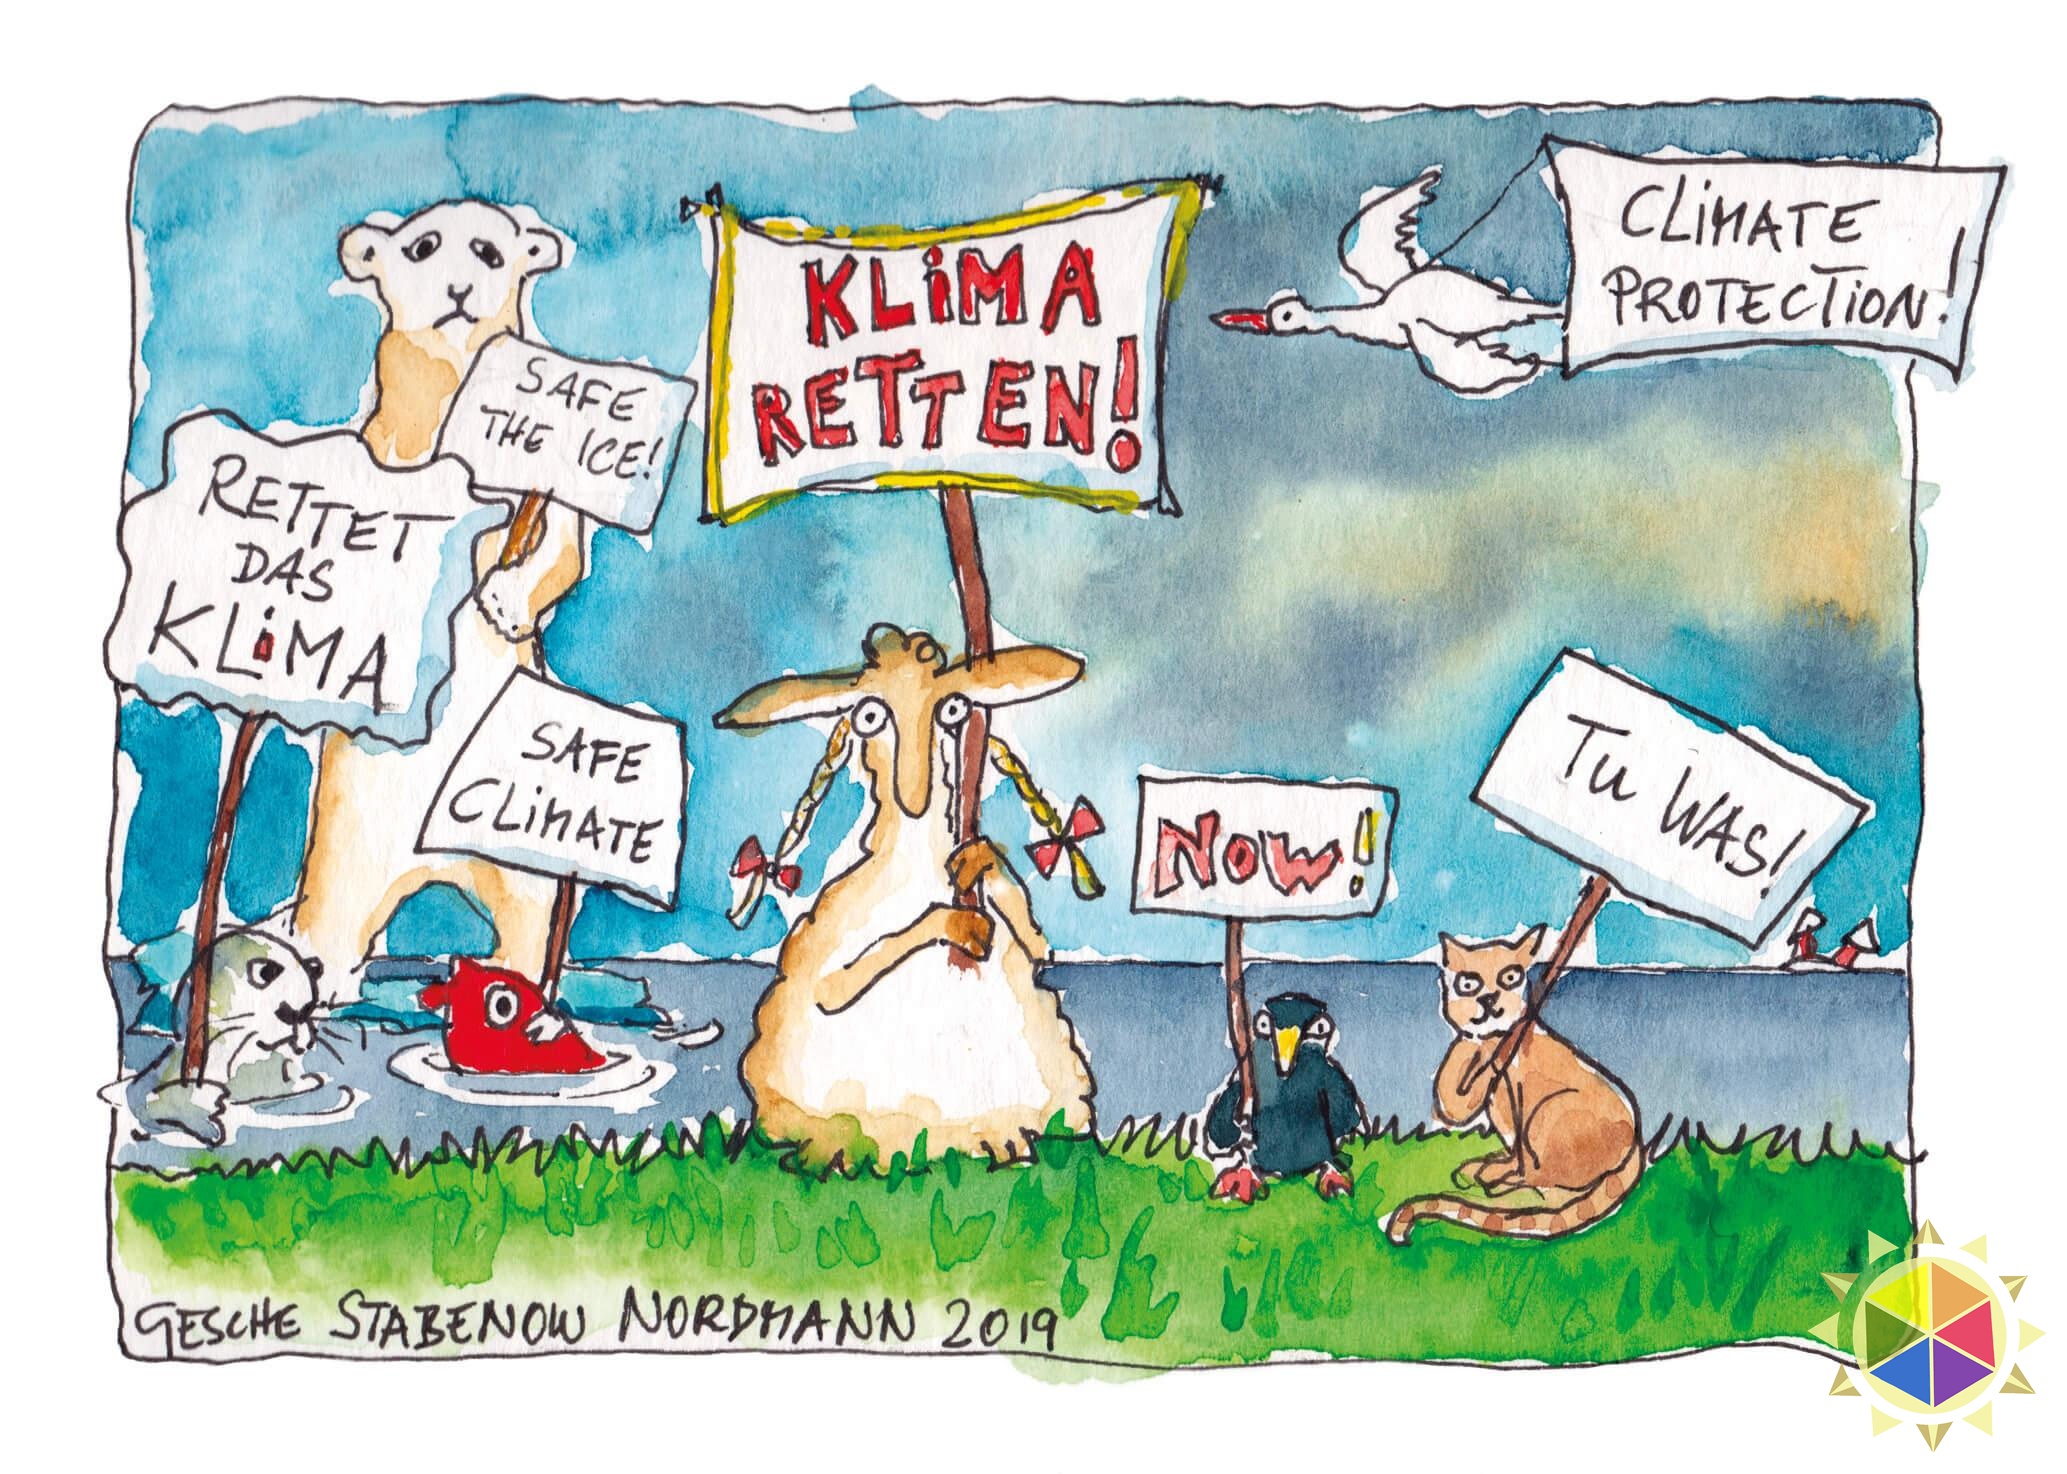 CLiMATE
PROTECTiON!
KLiMA
RETTEN!
SAFE
THE ICE!
RETTET
DAS
KLiMA
SAFE
CLiMATE
NOW!
TU WAS!
GESCHE STABENOW NORDMANN 2019